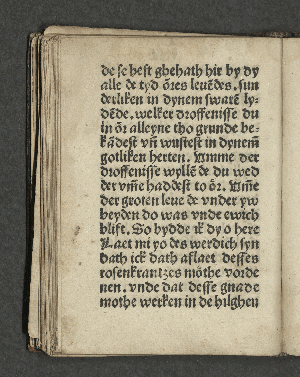 de se heft ghehath hir by dy
alle de tyd ōres leuēdes. sun
derliken in dynem swarē ly⸗
dēde. welker droffenisse du
in ōr alleyne tho grunde be⸗
kādest vñ wustest in dynem̄
gotliken herten. Vmme der
droffenisse wyllē de du wed
der vm̄e haddest to ōr. Vm̄e
der groten leue de vnder yw
beyden do was vnde ewich
blift. So bydde ik dy o here
Laet mi yo des werdich syn
dath ick dath aflaet desses
rosenkrantzes mōthe vorde
nen. vnde dat desse gnade
mothe werken in de hilghen